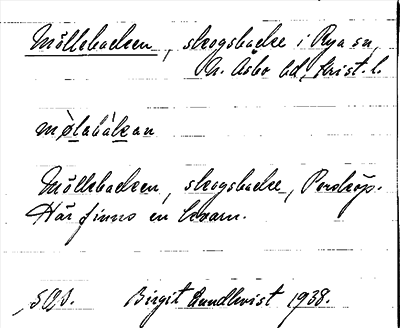 Möllebacken, skogsbacke i Rya sn,
N. Åsbo hd, Krist. l.
mòlabákan
Möllebacken, skogsbacke, Porskrop.
Här finns en kvarn.
SOS. Birgit Sundkvist 1938.